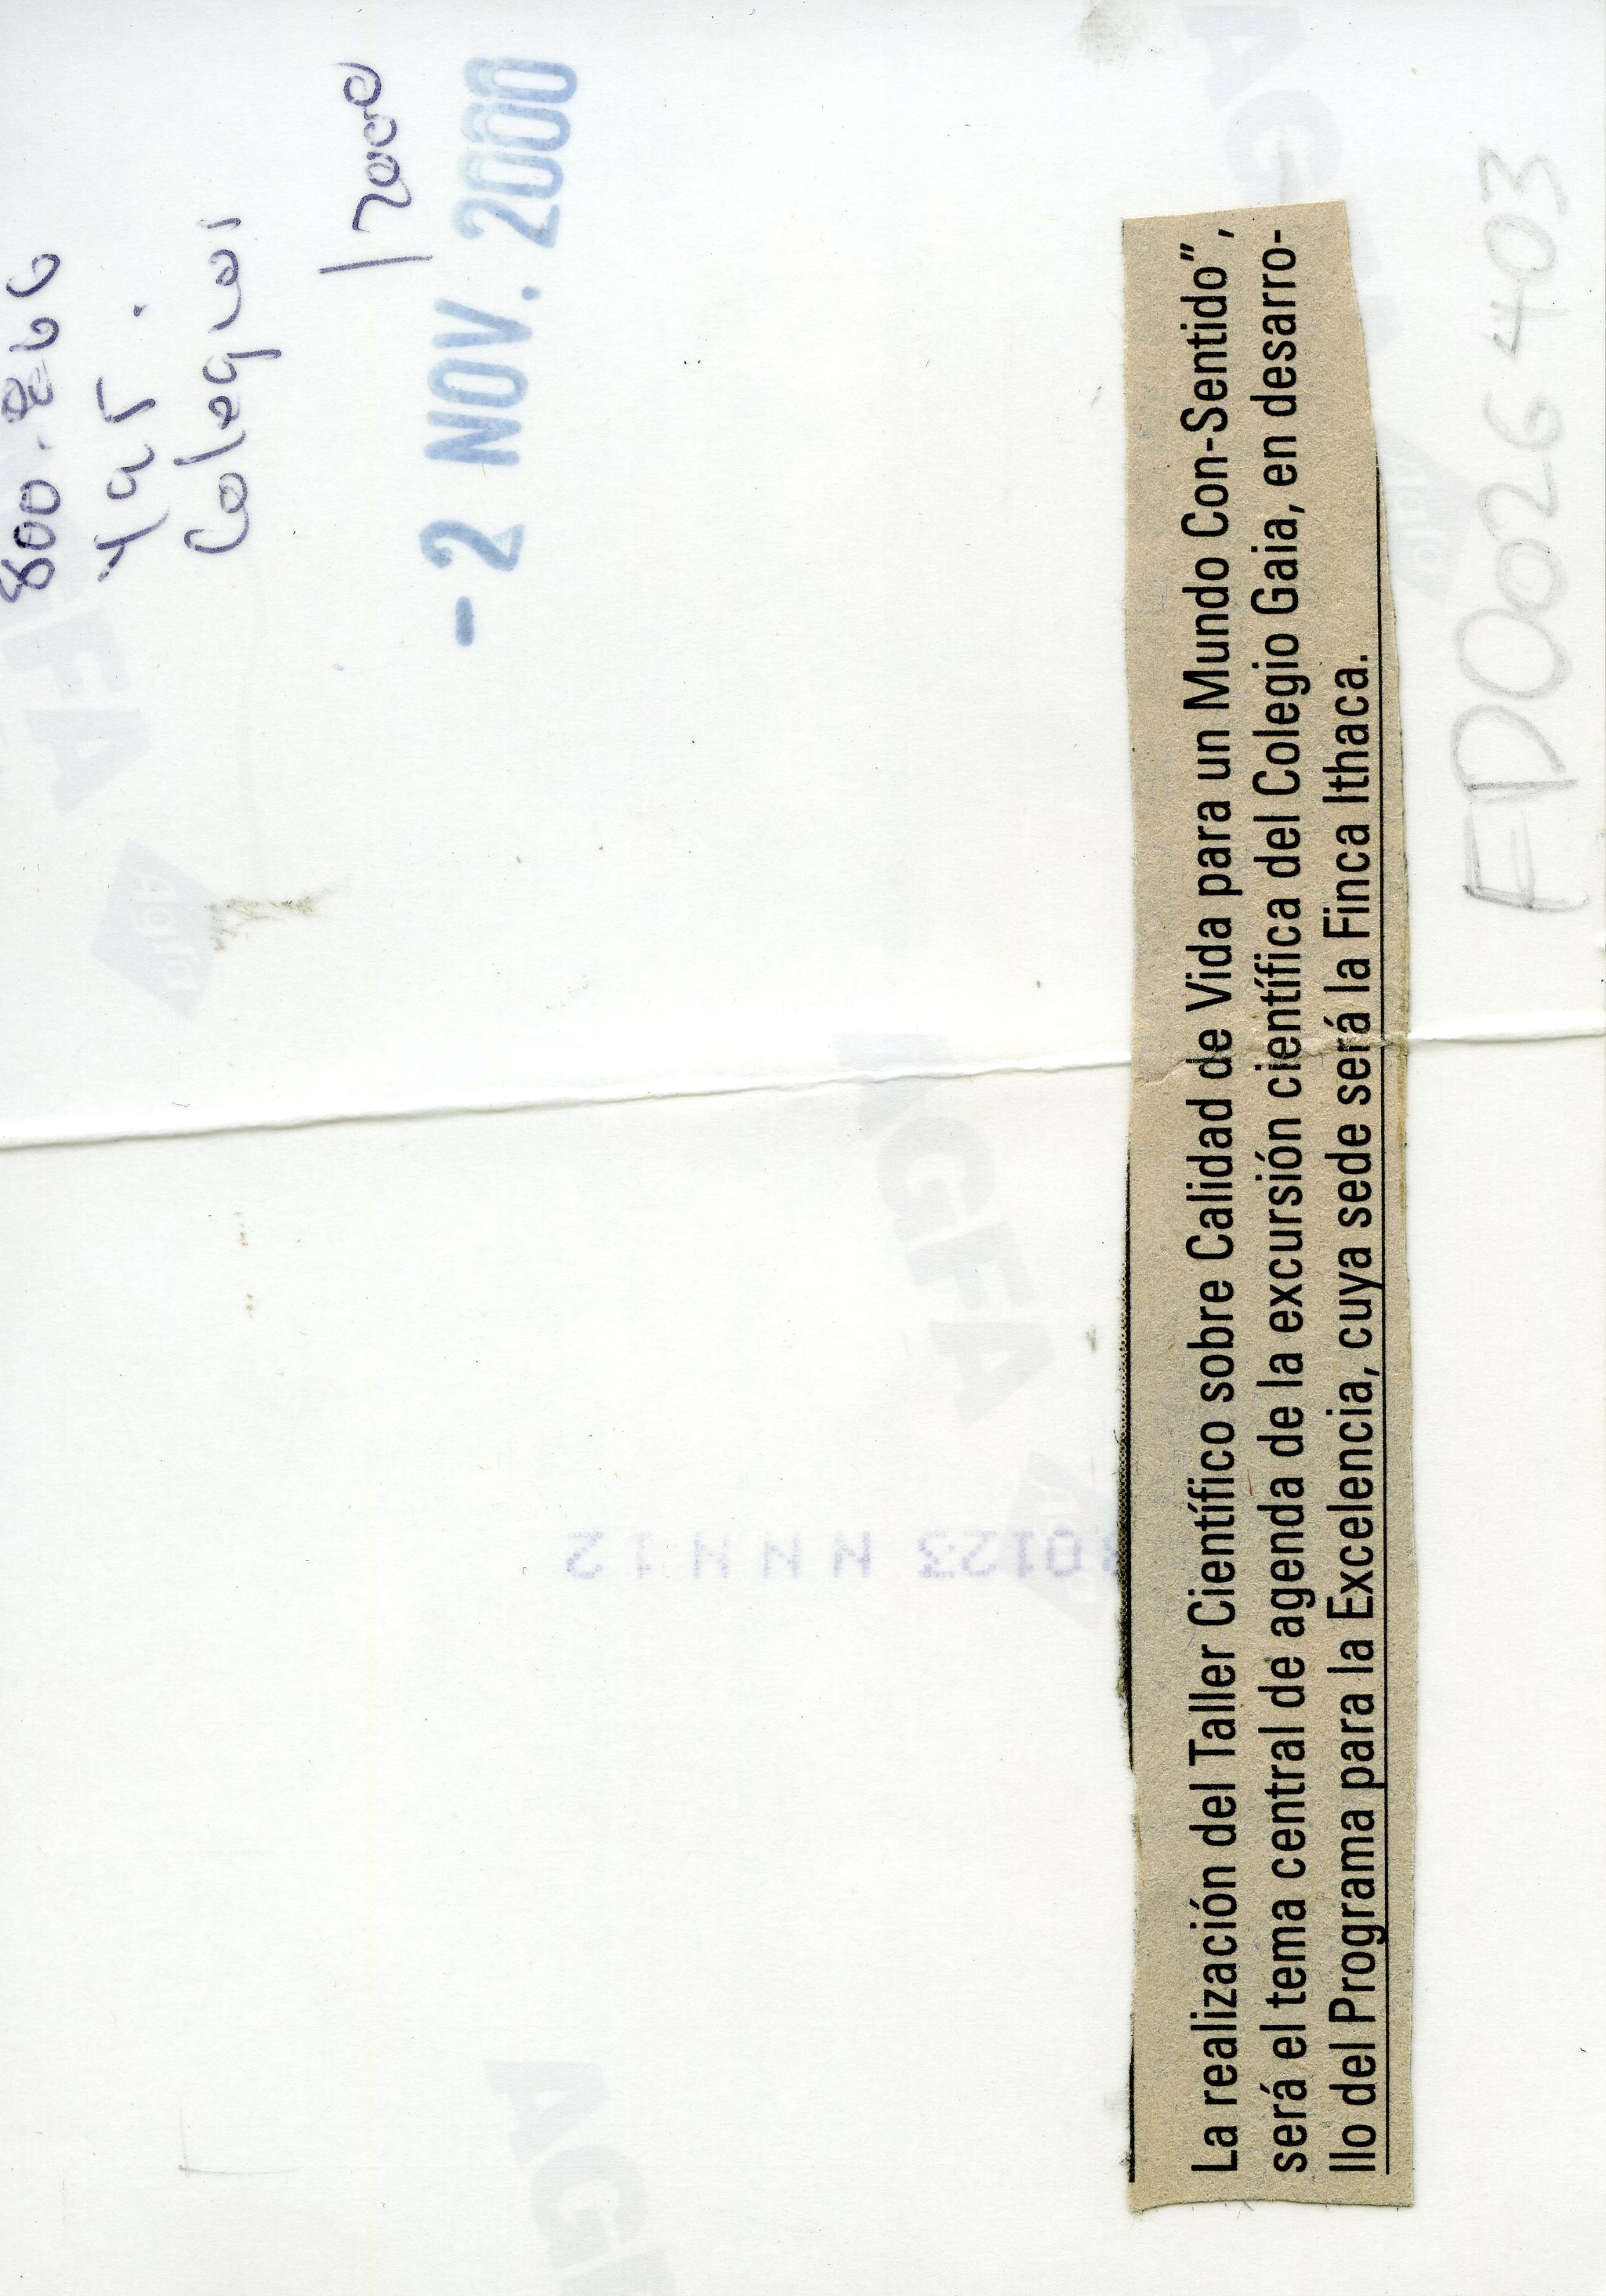 2000
- 2 NOV. 2000
La realización del Taller Científico sobre Calidad de Vida para un Mundo Con-Sentido",
será el tema central de agenda de la excursión científica del Colegio Gaia, en desarro-
llo del Programa para la Excelencia, cuya sede será la Finca Ithaca.
ED0026403
AGFA
AGFA
Agfa
N N N 12